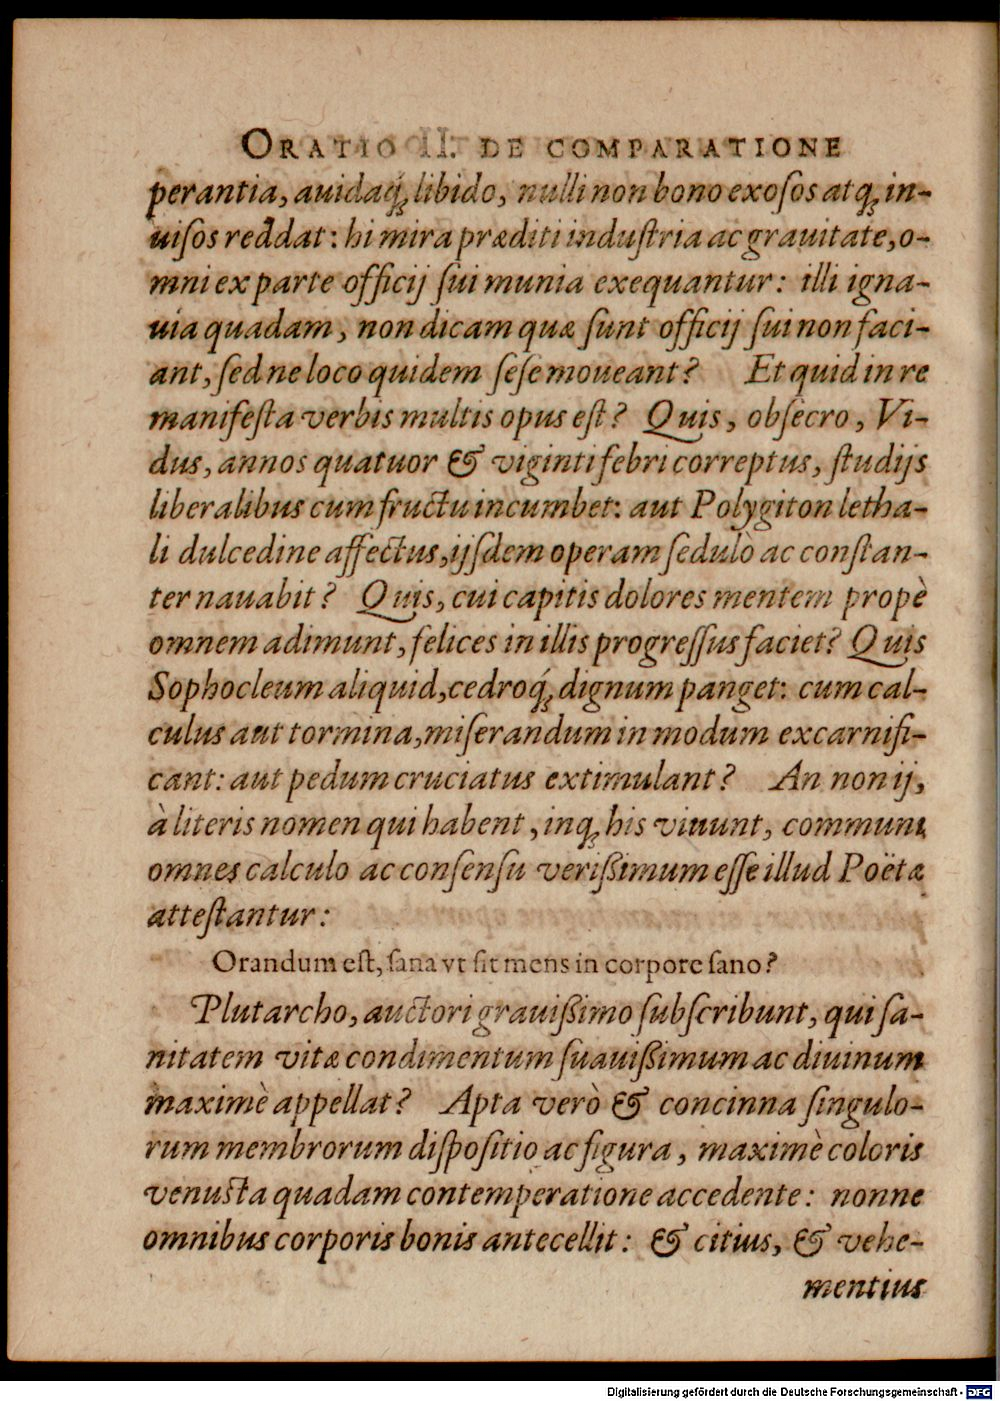 ORATIO II. DE COMPARATIONE
perantia, auidaq́ꝫ libido, nulli non bono exoſos atqꝫ in-
uiſos reddat: hi mira præditi induſtria ac grauitate, o-
mni ex parte officij ſui munia exequantur: illi igna-
uia quadam, non dicam quæ ſunt officij ſui non faci-
ant, ſed ne loco quidem ſeſe moueant? Et quid in re
manifeſta verbis multis opus eſt? Quis, obſecro, Vi-
dus, annos quatuor & viginti febri correptus, ſtudijs
liberalibus cum fructu incumbet: aut Polygiton letha-
li dulcedine affectus, ijſdem operam ſedulò ac conſtan-
ter nauabit? Quis, cui capitis dolores mentem propè
omnem adimunt, felices in illis progreſſus faciet? Quis
Sophocleum aliquid, cedroq́ꝫ dignum panget: cum cal-
culus aut tormina, miſerandum in modum excarnifi-
cant: aut pedum cruciatus extimulant? An non ij,
à literis nomen qui habent, inqꝫ his viuunt, communi
omnes calculo ac conſenſu verißimum eſſe illud Poëtæ
atteſtantur:
Orandum eſt, ſana vt ſit mens in corpore ſano?
Plutarcho, auctori grauißimo ſubſcribunt, qui ſa-
nitatem vitæ condimentum ſuauißimum ac diuinum
maximè appellat? Apta verò & concinna ſingulo-
rum membrorum diſpoſitio ac figura, maximè coloris
venuſta quadam contemperatione accedente: nonne
omnibus corporis bonis antecellit: & citius, & vehe-
mentius
Digitalisierung gefördert durch die Deutsche Forschungsgemeinschaft - DFG